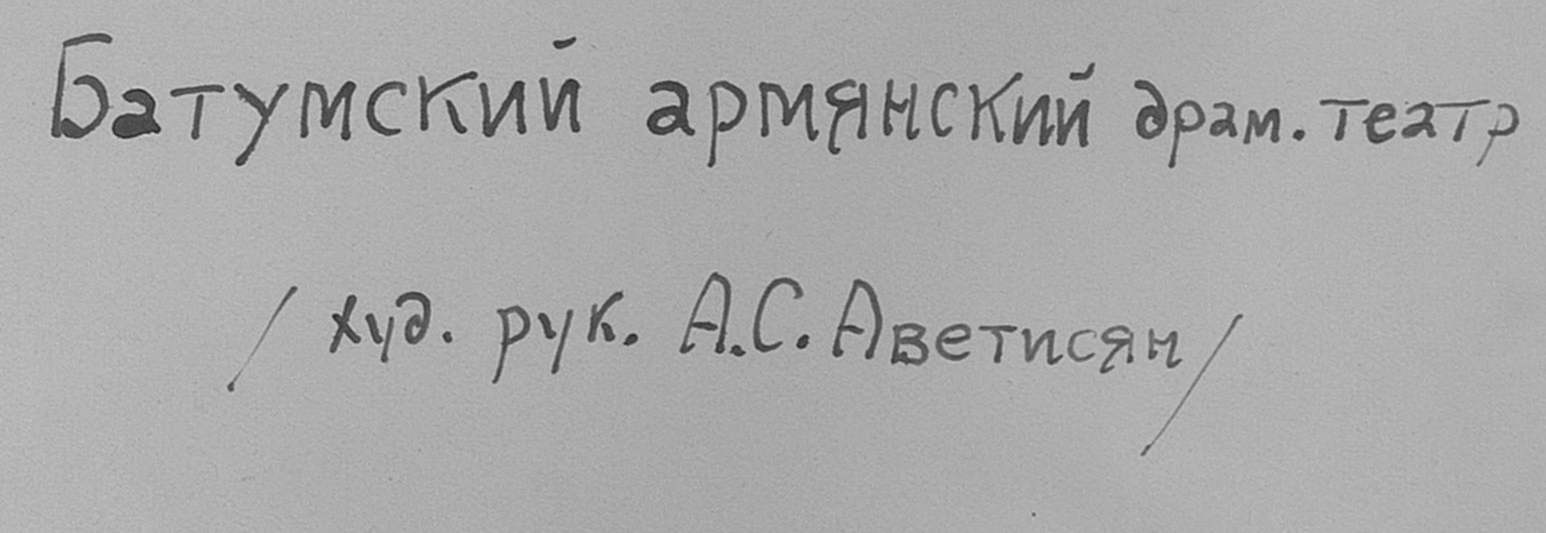 Батумский армянский драм. театр
/ худ. рук. А.С. Аветисян/